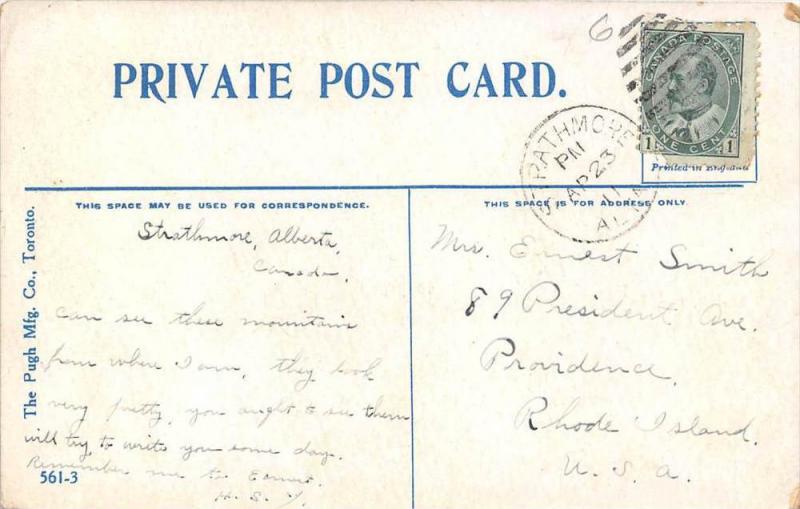 PRIVATE POST CARD.
6
CANADA POSTAGE
1 ONE CENT 1
Printed in England
STRATHMORE
PM
AP 23
11
THIS SPACE MAY BE USED FOR CORRESPONDENCE.
Strathmore, Alberta,
Canada,
can see these mountains
from where I am, they look
very pretty, you ought to see them
will try to write you some day.
Remember me to Ernest.
H. S. Y.
THIS SPACE IS FOR ADDRESS ONLY.
Mrs. Ernest Smith
89 President Ave.
Providence,
Rhode Island.
U. S. A.
The Pugh Mfg. Co., Toronto.
561-3